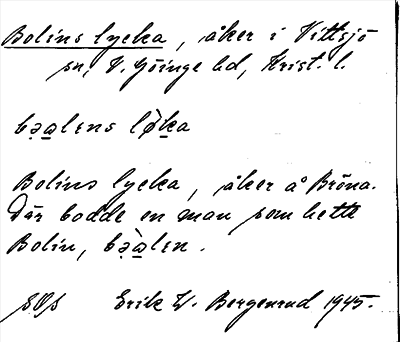 Bolins lycka, åker i Vittsjö
sn, V. Göinge hd, Krist. l.
bəalens løka
Bolins lycka, åker å Bröna.
Där bodde en man som hette
Bolin, bəàlen.
Erik W. Bergenrud 1945.